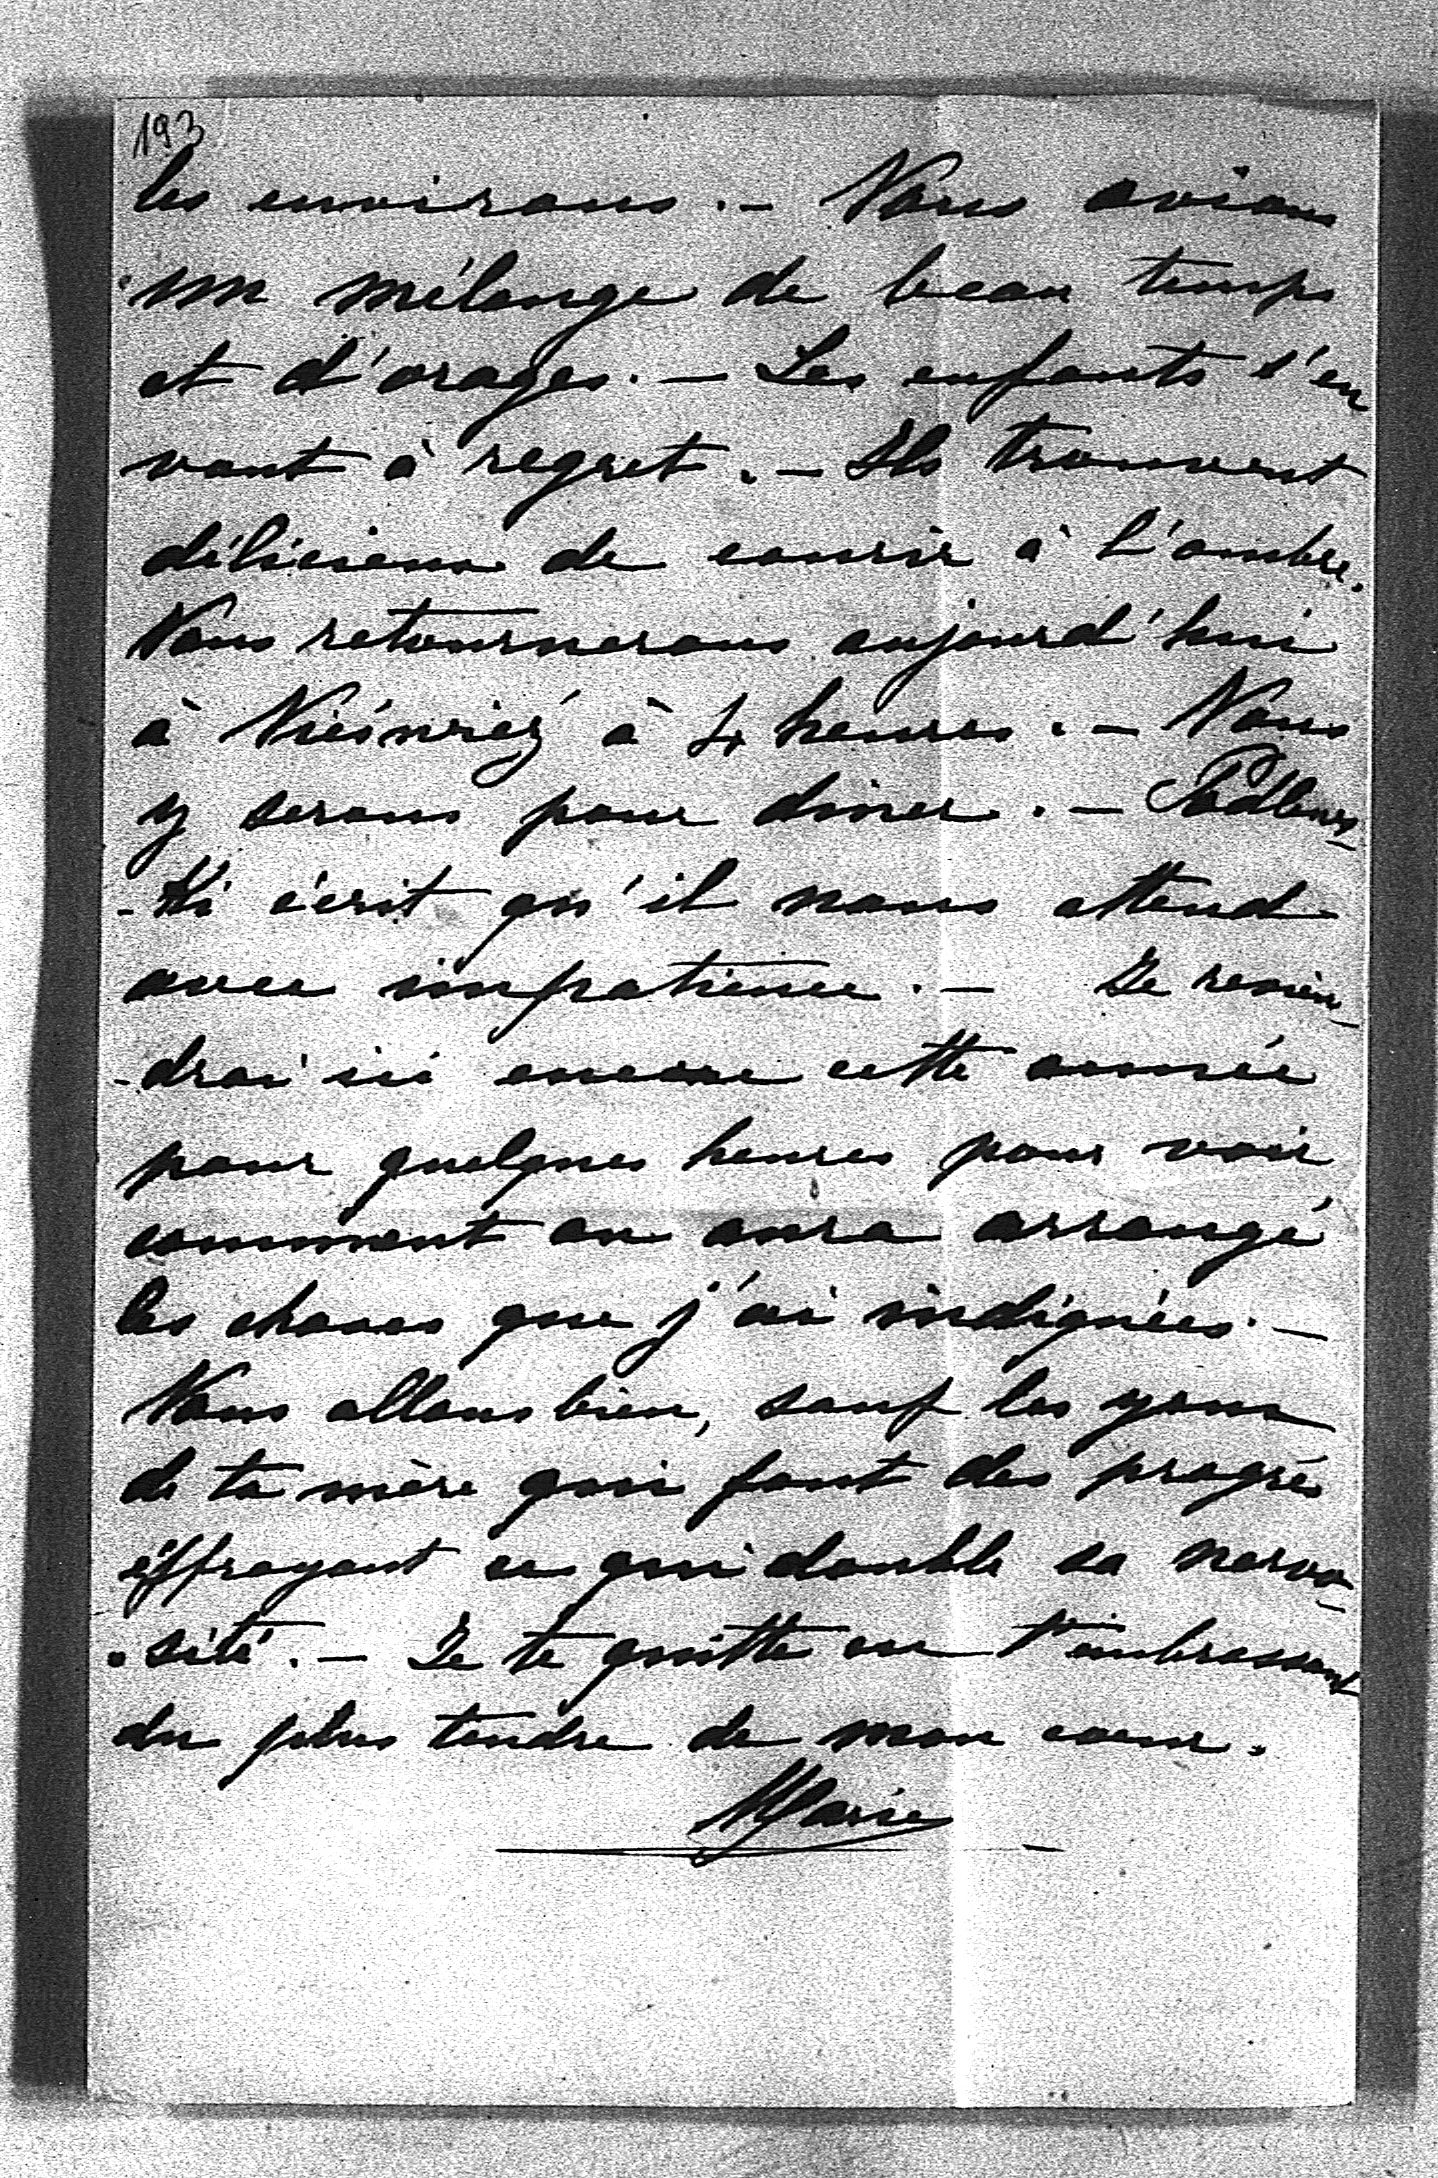 193
les environs. — Nous avions
un mélange de beau temps
et d'orages. — Les enfants s'en
vont à regret. — Ils trouvent
délicieux de courir à l'ombre.
Nous retournerons aujourd'hui
à Nieśwież à 4 heures. — Nous
y serons pour diner. — Podlews-
-ki écrit qu'il nous attend
avec impatience. — Je revien-
-drai ici encore cette année
pour quelques heures pour voir
comment on aura arrangé
les choses que j'ai indiquées. —
Nous allons bien, sauf les yeux
de ta mère qui font des progrès
éffrayant ce qui double sa nervo-
-sité. — Je te quitte en t'embrassant
du plus tendre de mon coeur.
Marie